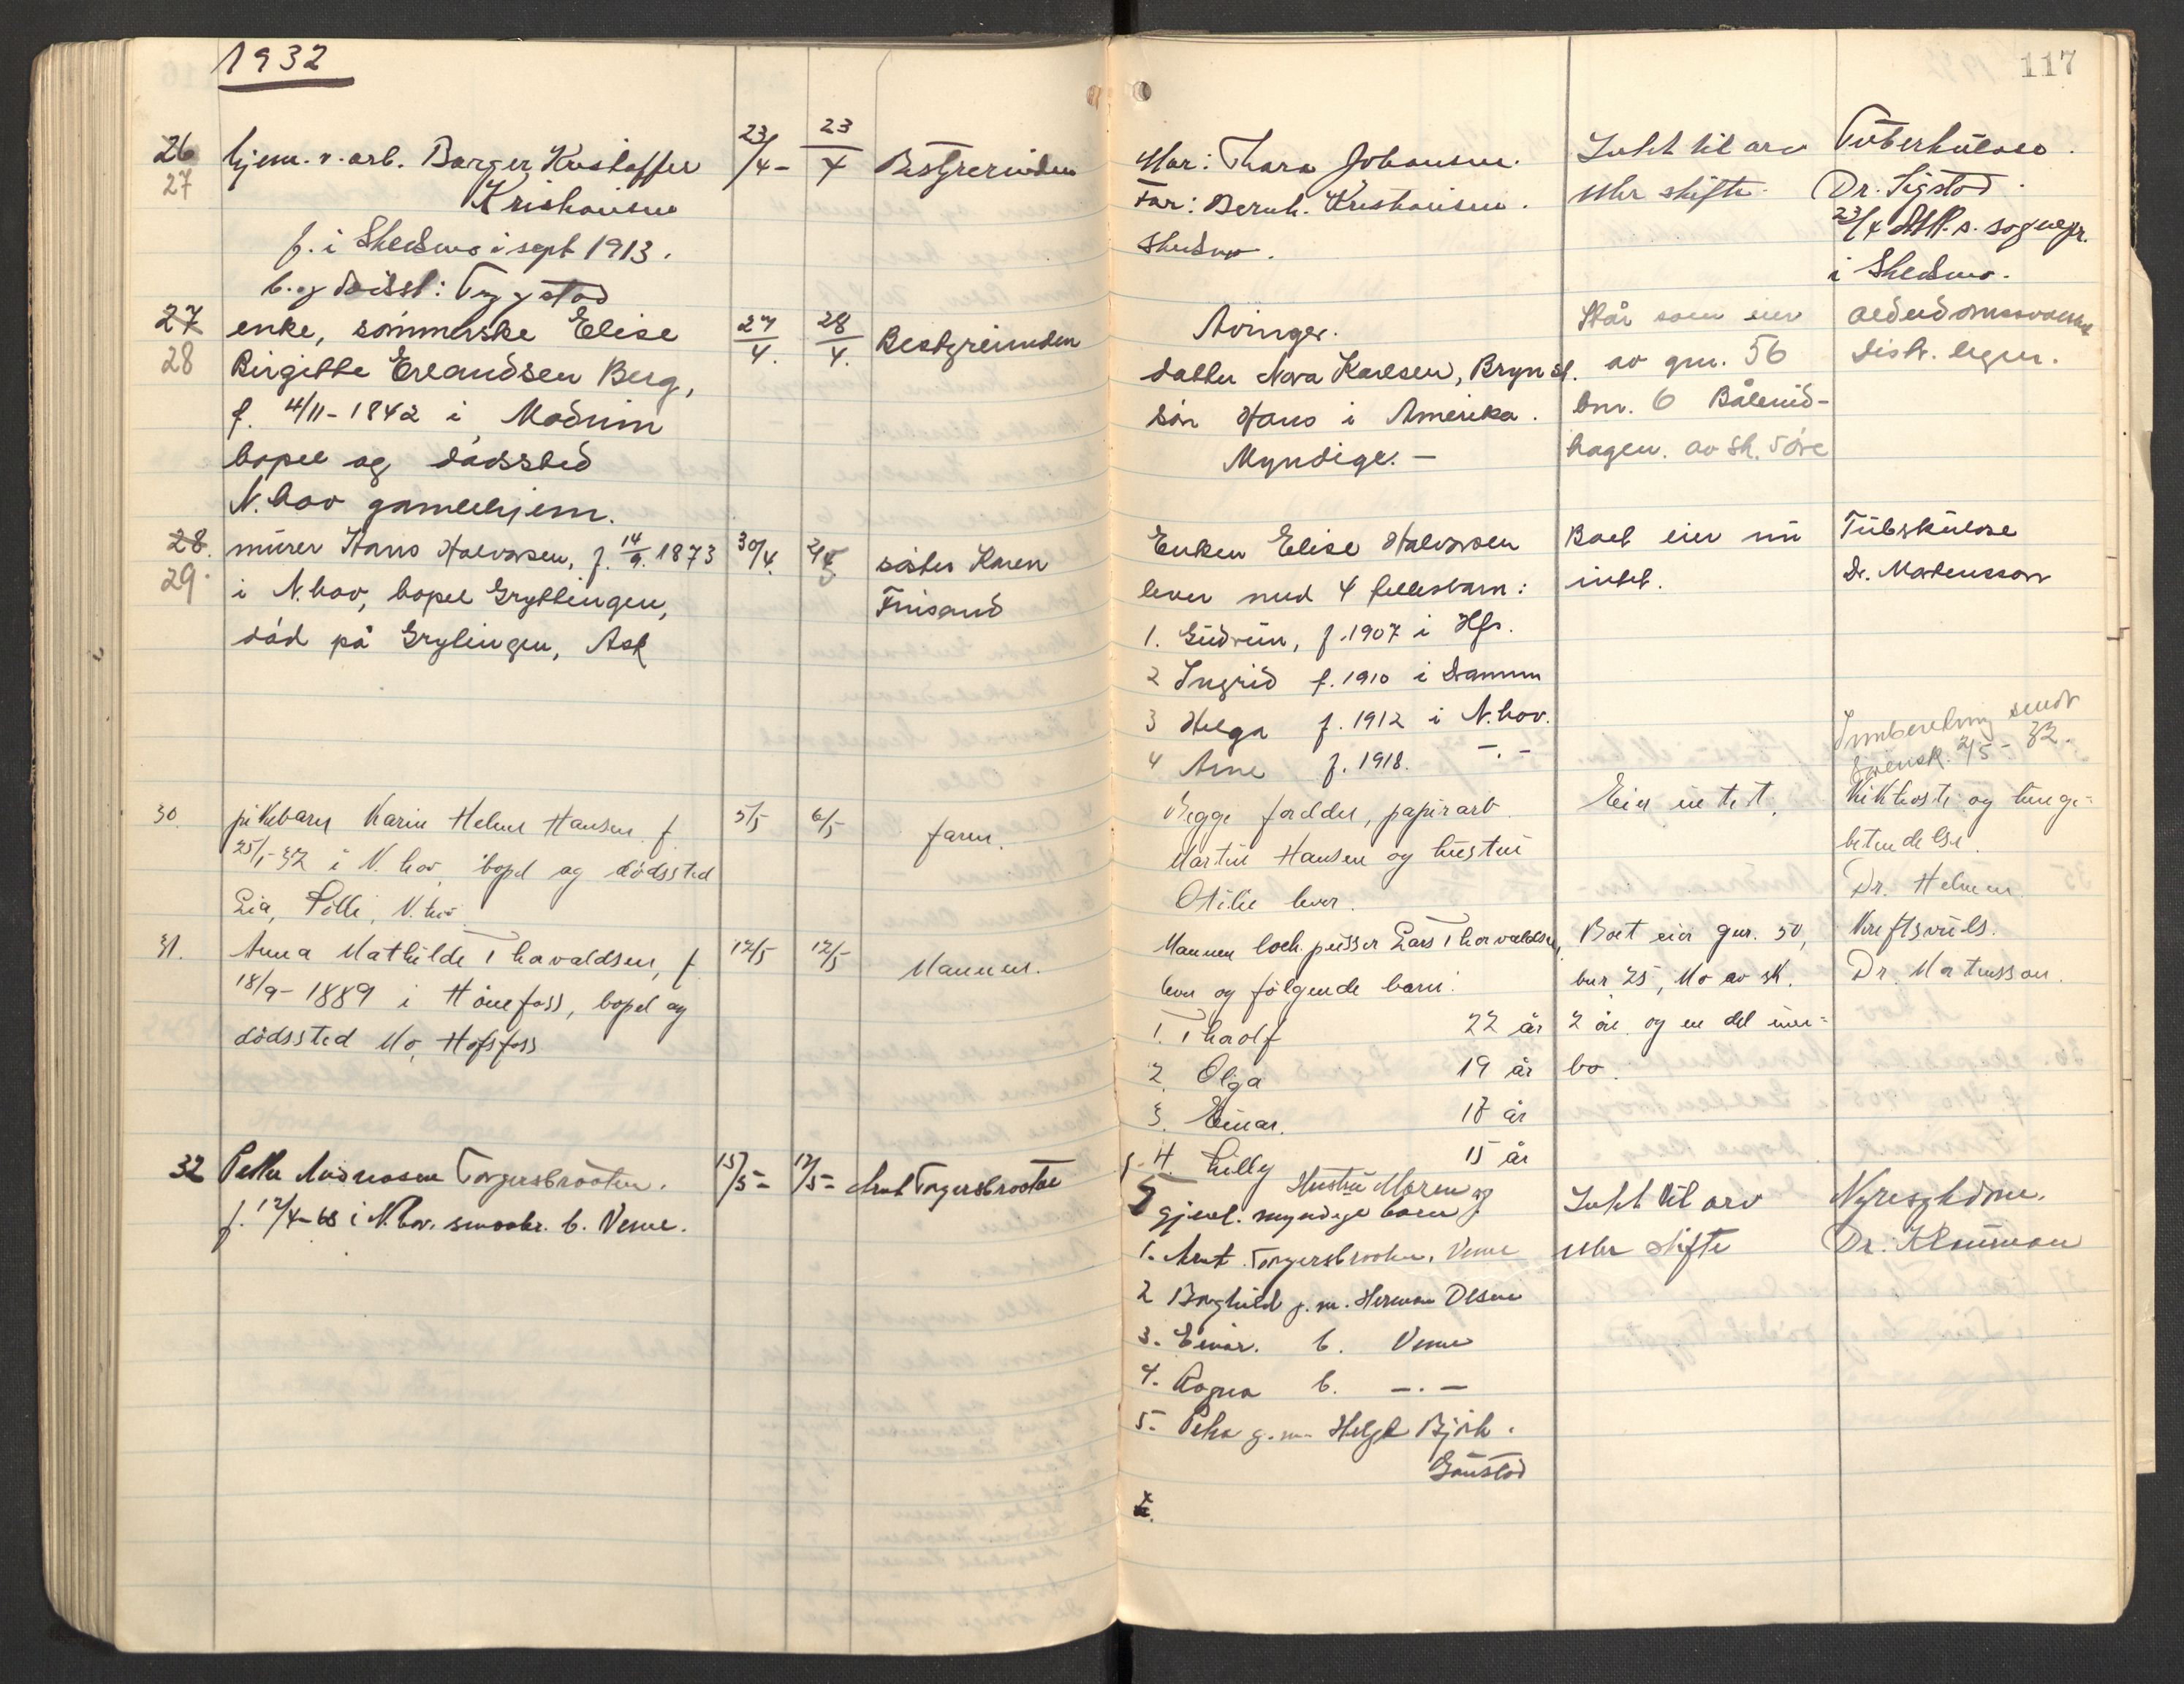 1932
117
26 hjem. v. arb. Borger Kristoffer 23/4- 23/4 Bestyrerinden
27 Kristiansen
f. i Skedsmo i sept 1913.
b. og dödsst: Tryggstad
Mor: Thora Johansen.
Far: Bernh. Kristiansen.
Skedsmo.
Intet til arv
eller skifte.
Tüberkülose.
Dr. Sigstad.
23/4 sognepr.
i Skedsmo.
27 enke, sömmerske Elise 27/4. 28/4. Bestyrerinden
28 Birgitte Erlandsen Berg,
f. 4/11-1842 i Modum
bopel og dödssted
N.hov gamlehjem.
Arvinger.
datter Nora Karlsen, Bryn st.
sön Hans i Amerika.
Myndige. —
Står som eier
av gnr. 56
bnr. 6 Bålerud-
hagen. av sk. 5 öre
alderdomssvakhet
distr. legen.
28. mürer Hans Halvorsen, f. 14/9. 1873 30/4. 2/5 söster Karen
29. i N.hov, bopel Gryttingen, Friisand
död på Grytingen, Ask
Enken Elise Halvorsen
lever med 4 fellesbarn:
1. Güdrün, f. 1907 i Hfs.
2 Ingrid f. 1910 i Dramm
3 Helga f. 1912 i N.hov.
4 Arne f. 1918. —.—
Boet eier nü
intet.
Tüberkülose
Dr. Martensson
Innberetning sendt
2/5-32.
30. pikebarn Karin Helene Hansen f. 5/5 6/5 faren.
25/1-32 i N.hov, bopel og dödssted
Lia, Follü, N.hov
Begge foreldre, papirarb.
Martin Hansen og hüstrü
Otilie lever.
Eier intet.
Kikhoste og lünge-
betendelse.
Dr. Helmen
31. Anna Mathilde Thorvaldsen, f. 12/5 12/5 Mannen.
18/9-1889 i Hönefoss, bopel og
dödssted Mo, Hofsfoss
Mannen lok. püsser Lars Thorvaldsen,
lever og fölgende barn:
1. Thorolf 22 år
2. Olga 19 år
3. Einar. 18 år
4. Lilly 15 år
Boet eier gnr. 50,
bnr 25, Mo av sk.
2 öre. og en del inn-
bo.
Kreftsvüls.
Dr. Martensson.
32 Petter Andreasen Torgersbraaten. 15/5- 17/5- Arnt Torgersbraaten
f. 12/4-68 i N.hov. smaabr. b. Veme.
Hüstrü Maren og
gjenl. myndige barn
1. Arnt Torgersbraaten, Veme
2 Borghild g.m. Herman Olsen
3. Einar. b. Veme
4. Ragna b. —.—
5. Petra g.m. Helge Björk.
Gaüstad
Intet til arv
eller skifte
Nyresygdom.
Dr. Klaüman